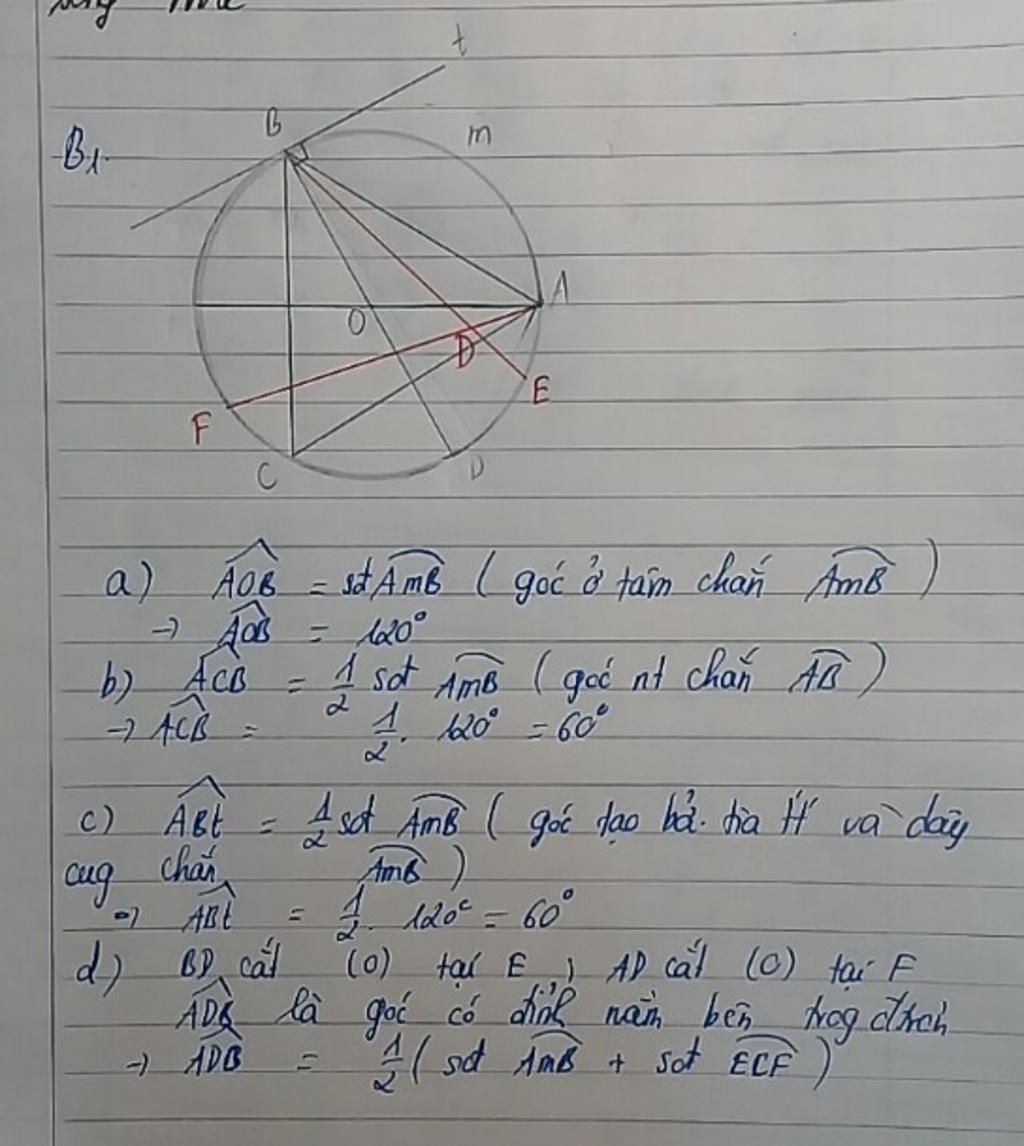 t
B
m
B1.
A
O
D
E
F
C
D
a) AOB = sđ AmB ( góc ở tâm chắn AmB )
→ AOB = 120°
b) ACB = 1/2 sđt AmB ( góc nt chắn AB )
→ ACB = 1/2 . 120° = 60°
c) ABt = 1/2 sđt AmB ( góc tạo bở. tia tt' và dây
cug chắn AmB )
→ ABt = 1/2 . 120° = 60°
d) BD cắt (O) tại E , AD cắt (O) tại F
ADB là góc có đỉnh nằm bên trog
→ ADB = 1/2 ( sđt AmB + sđt ECF )